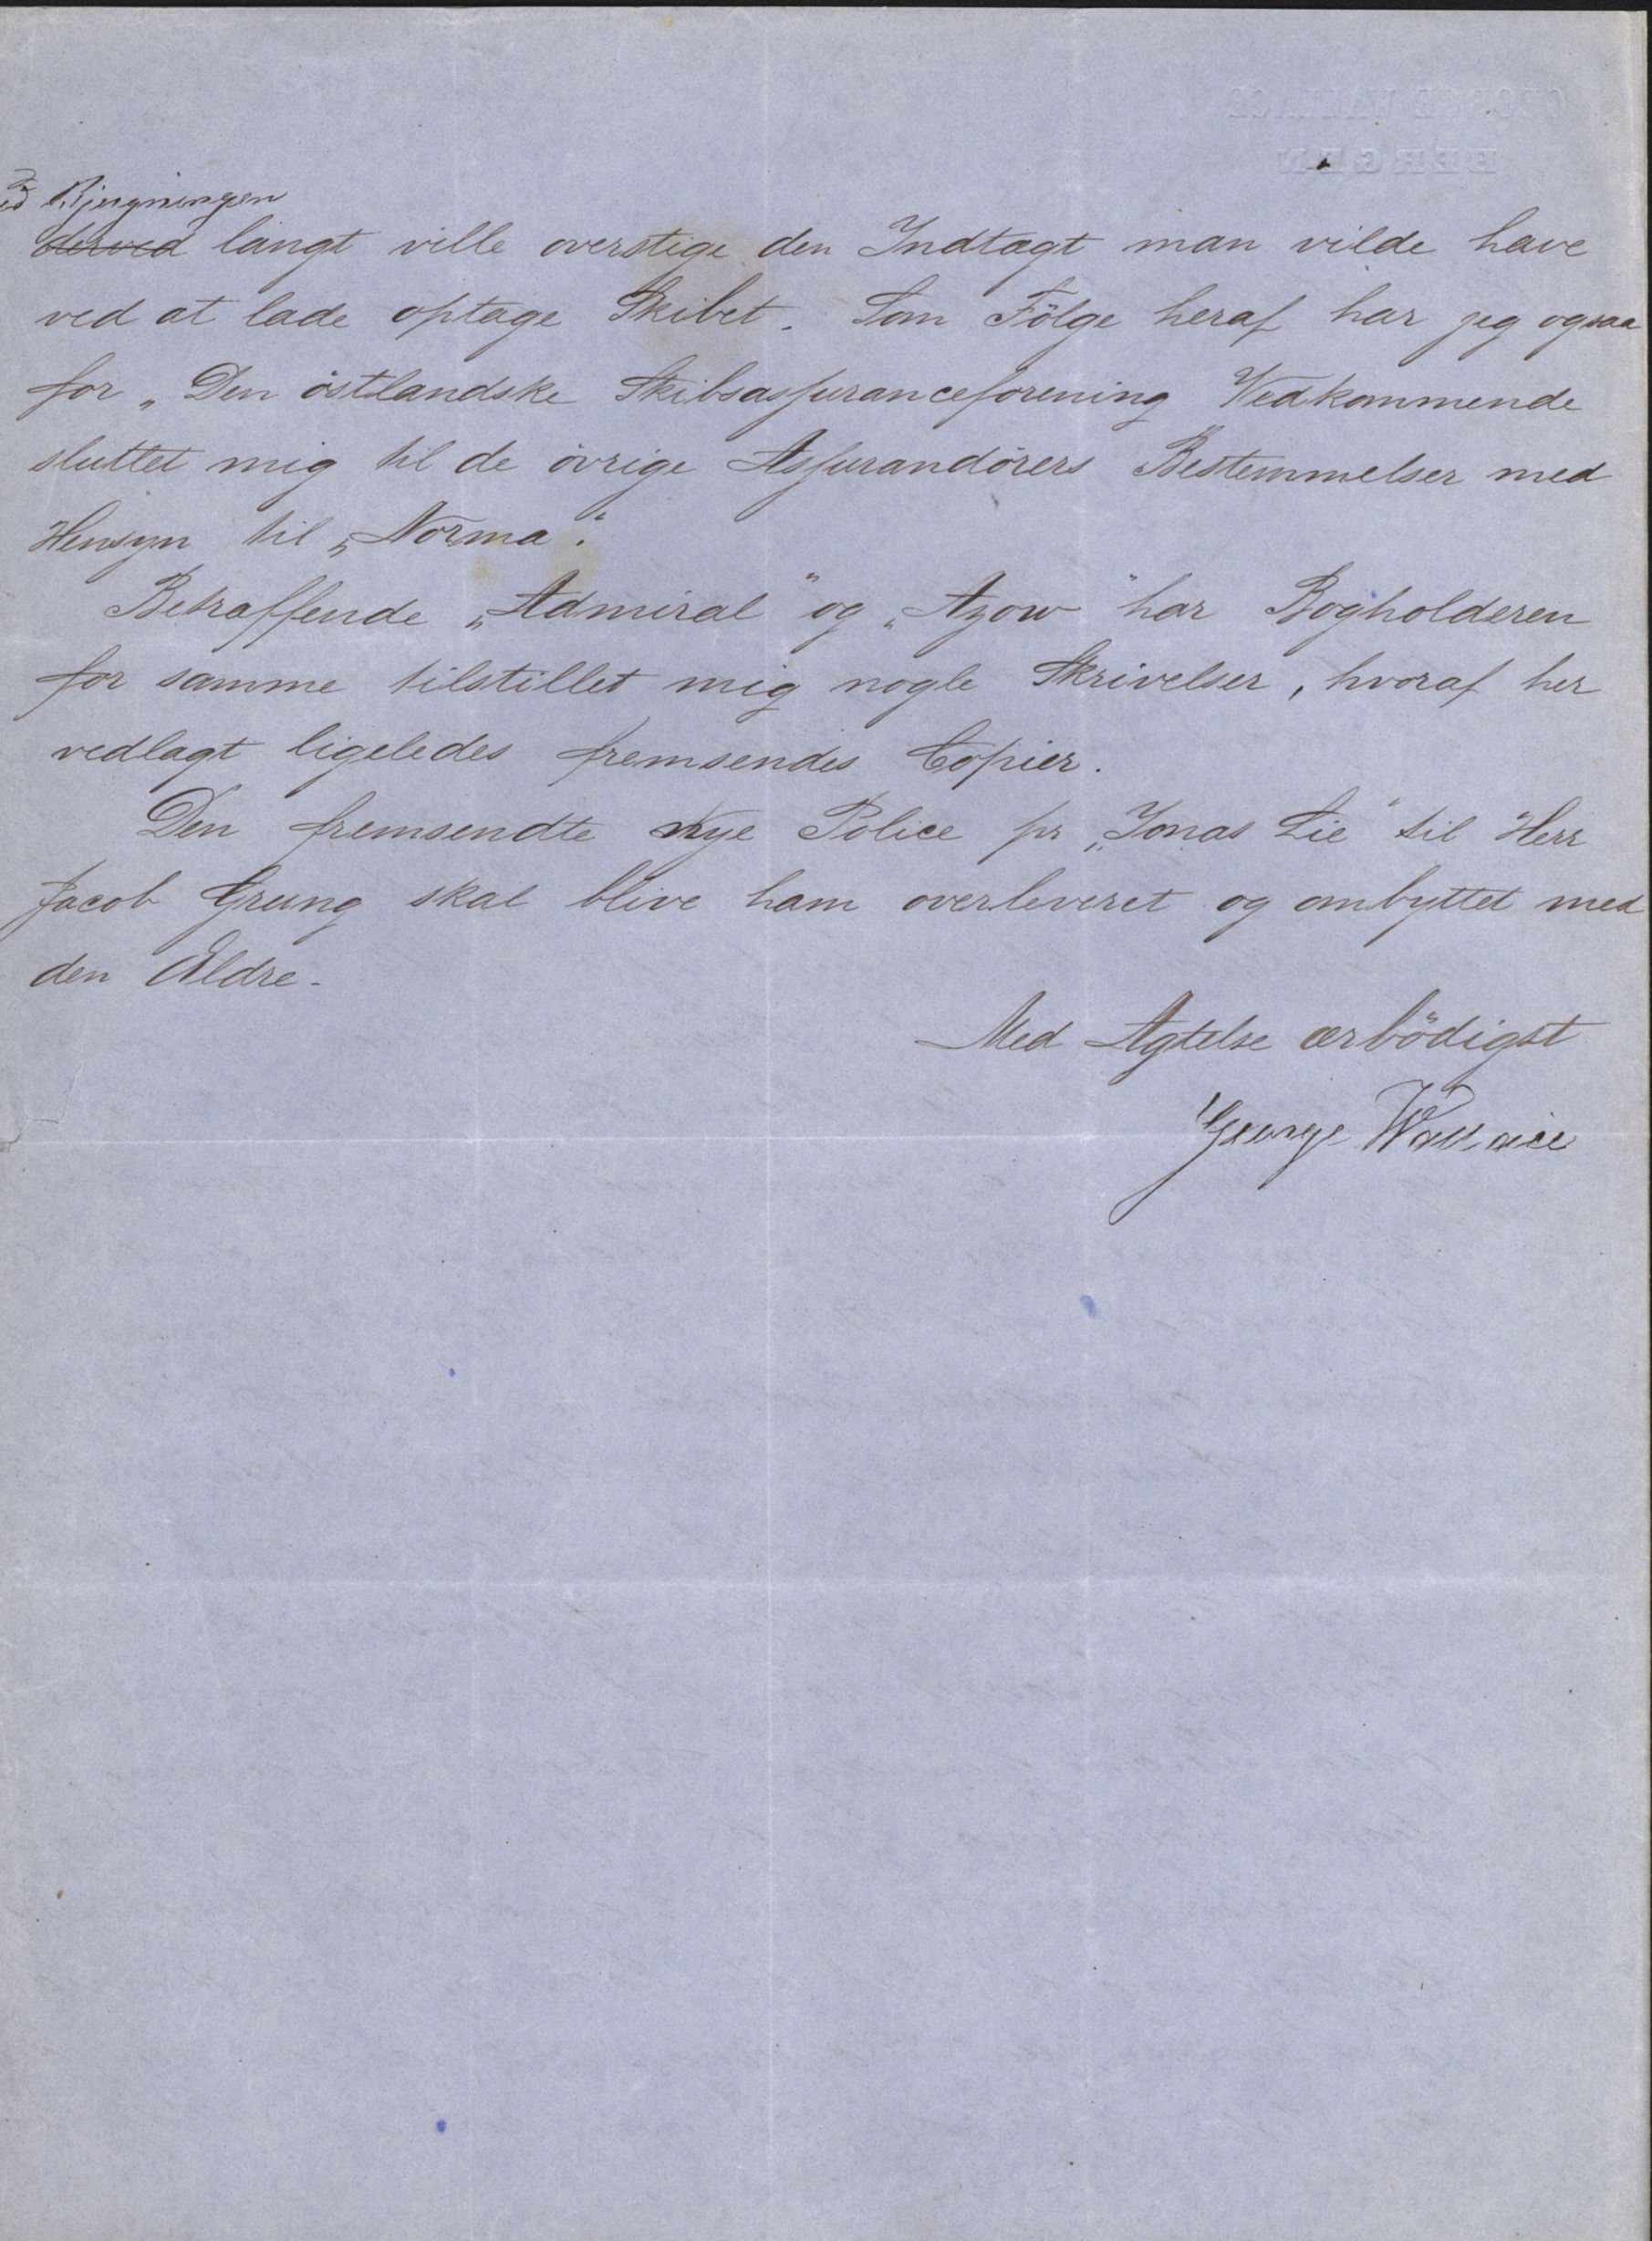 GEORGE WALLACE
BERGEN
ved Bjergningen
derved langt ville overstige den Indtægt man vilde have
ved at lade optage Skibet. Som Fölge heraf har jeg ogsaa
for „Den östlandske Skibsassuranceforening Vedkommende
sluttet mig til de övrige Assurandörers Bestemmelser med
Hensyn til „Norma".
Betræffende „Admiral" og „Azow" har Bogholderen
for samme tilstillet mig nogle Skrivelser, hvoraf her
vedlagt ligeledes fremsendes Copier.
Den fremsendte nye Police pr „Jonas Lie" til Herr
Jacob Grung skal blive ham overleveret og ombyttet med
den Ældre.
Med Agtelse ærbödigst
George Wallace